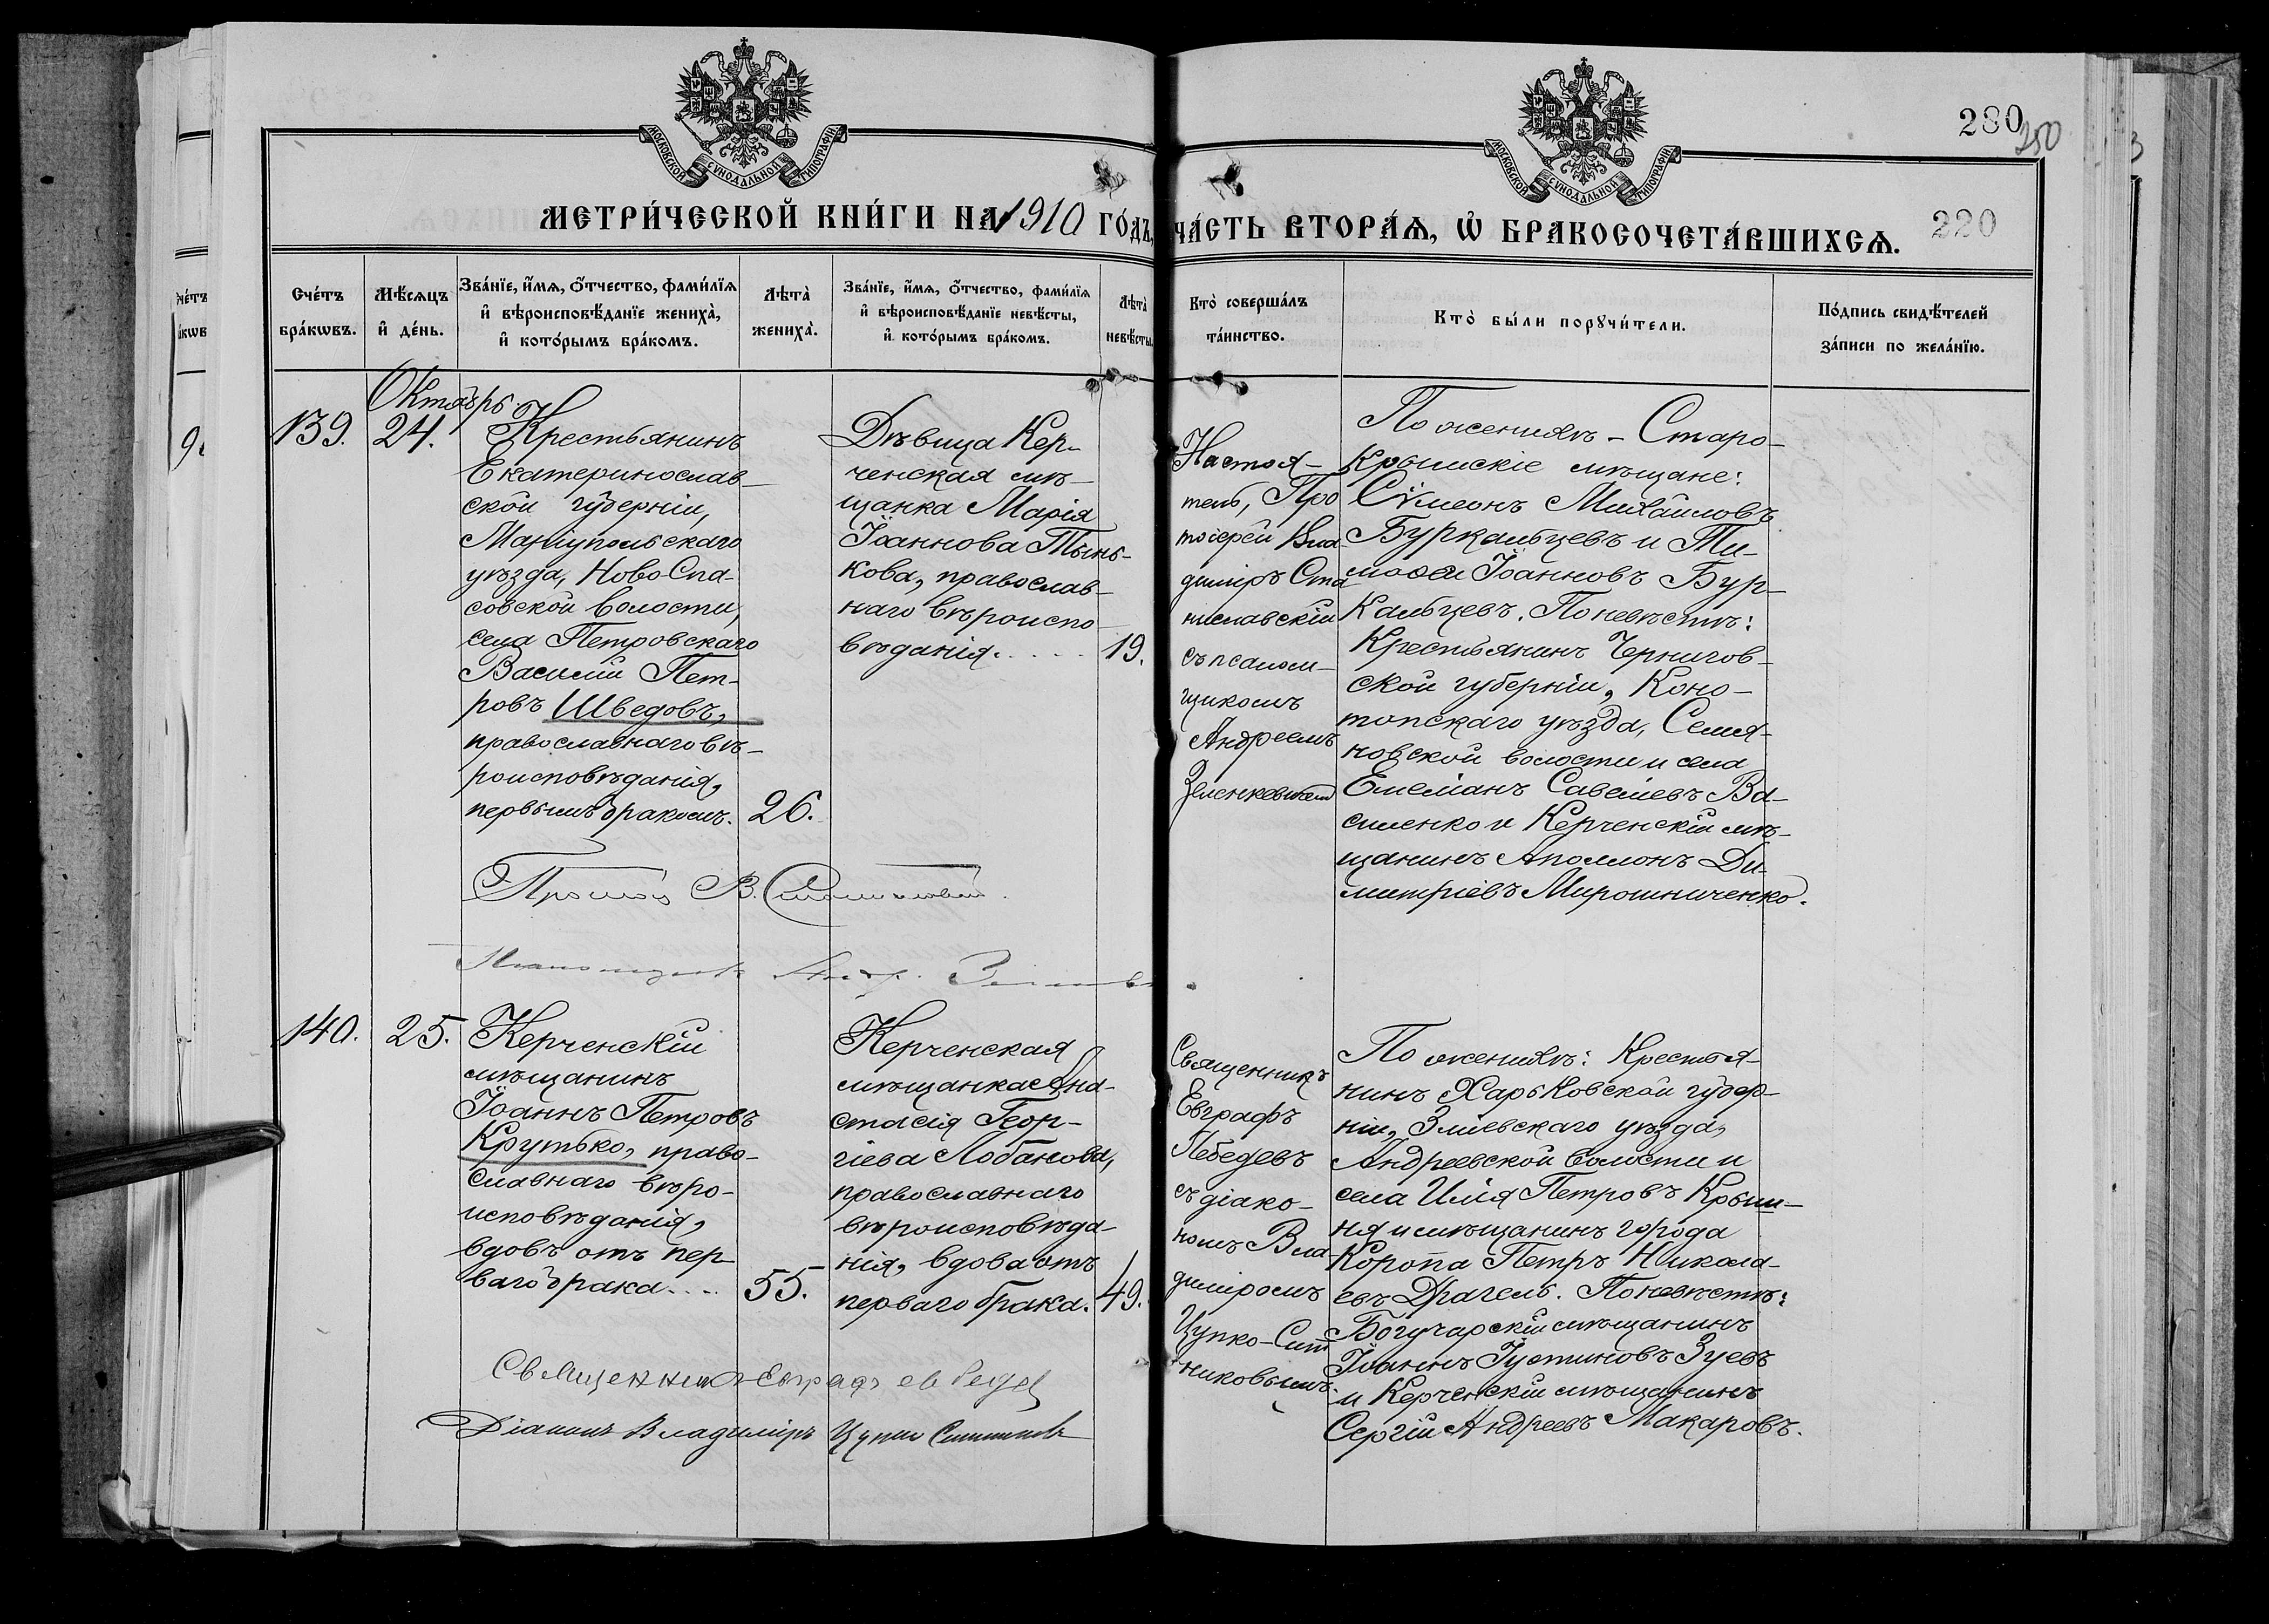 280
250
220
МОСКОВСКОЙ СѴНОДАЛЬНОЙ ТИПОГРАФІИ
МОСКОВСКОЙ СѴНОДАЛЬНОЙ ТИПОГРАФІИ
МЕТРИ́ЧЕСКОЙ КНИ́ГИ НА 1910 ГО́ДЪ, ЧА́СТЬ ВТОРА́Ѧ, Ѽ БРАКОСОЧЕТА́ВШИХСѦ.
Сче́тъ бра́кѡвъ.
Мѣ́сѧцъ и҆ де́нь.
Зва́нїе, и҆́мѧ, ѻ҆́тчество, фами́лїѧ и҆ вѣроисповѣ́данїе жениха̀, и҆ кото́рымъ бра́комъ.
Лѣта̀ жениха̀.
Зва́нїе, и҆́мѧ, ѻ҆́тчество, фами́лїѧ и҆ вѣроисповѣ́данїе невѣ́сты, и҆ кото́рымъ бра́комъ.
Лѣта̀ невѣ́сты.
Кто̀ соверша́лъ та́инство.
Кто̀ бы́ли порꙋчи́тели.
По́дпись свидѣ́телей за́писи по жела́нїю.
139.
Октябрь
24.
Крестьянинъ
Екатеринослав-
ской губерніи,
Маріупольскаго
уѣзда, Ново-Спа-
совской волости,
села Петровскаго
Василій Пет-
ровъ Шведовъ,
православнаго вѣ-
роисповѣданія,
первымъ бракомъ.
26.
Дѣвица Кер-
ченская мѣ-
щанка Марія
Іоаннова Тынь-
кова, православ-
наго вѣроиспо-
вѣданія.....
19.
Настоя-
тель, Про
тоіерей Вла-
диміръ Ста
ниславскій
съ псалом-
щикомъ
Андреемъ
Зеленкевичем
По женихѣ - Старо-
Крымскіе мѣщане:
Сѵмеонъ Михайловъ
Буркальцевъ и Ти-
моѳей Іоанновъ Бур-
кальцевъ. По невѣстѣ:
Крестьянинъ Чернигов-
ской губерніи, Коно-
топскаго уѣзда, Семя-
новской волости и села
Емеліанъ Савеліевъ Ва-
силенко и Керченскій мѣ-
щанинъ Аполлонъ Ди-
митріевъ Мирошниченко.
Псаломщикъ Андр.
140.
25.
Керченскій
мѣщанинъ
Іоаннъ Петровъ
Крутько, право-
славнаго вѣро-
исповѣданія,
вдовъ отъ пер-
ваго брака....
55.
Керченская
мѣщанка Ана-
стасія Геор-
гіева Лобанова,
православнаго
вѣроисповѣда-
нія, вдова отъ
перваго брака.
49.
Священникъ
Евграфъ
Лебедевъ
съ діако-
номъ Вла-
диміромъ
Цупко-Сит
никовымъ.
По женихѣ: Крестья-
нинъ Харьковской губер-
ніи, Зміевскаго уѣзда,
Андреевской волости и
села Илія Петровъ Крыш-
ня и мѣщанинъ города
Коропа Петръ Никола-
евъ Драгель. По невѣстѣ:
Богучарскій мѣщанинъ
Іоаннъ Іустиновъ Зуевъ
и Керченскій мѣщанинъ
Сергій Андреевъ Макаровъ.
Священникъ Евграфъ Лебедев
Діаконъ Владиміръ Цупко Ситниковъ